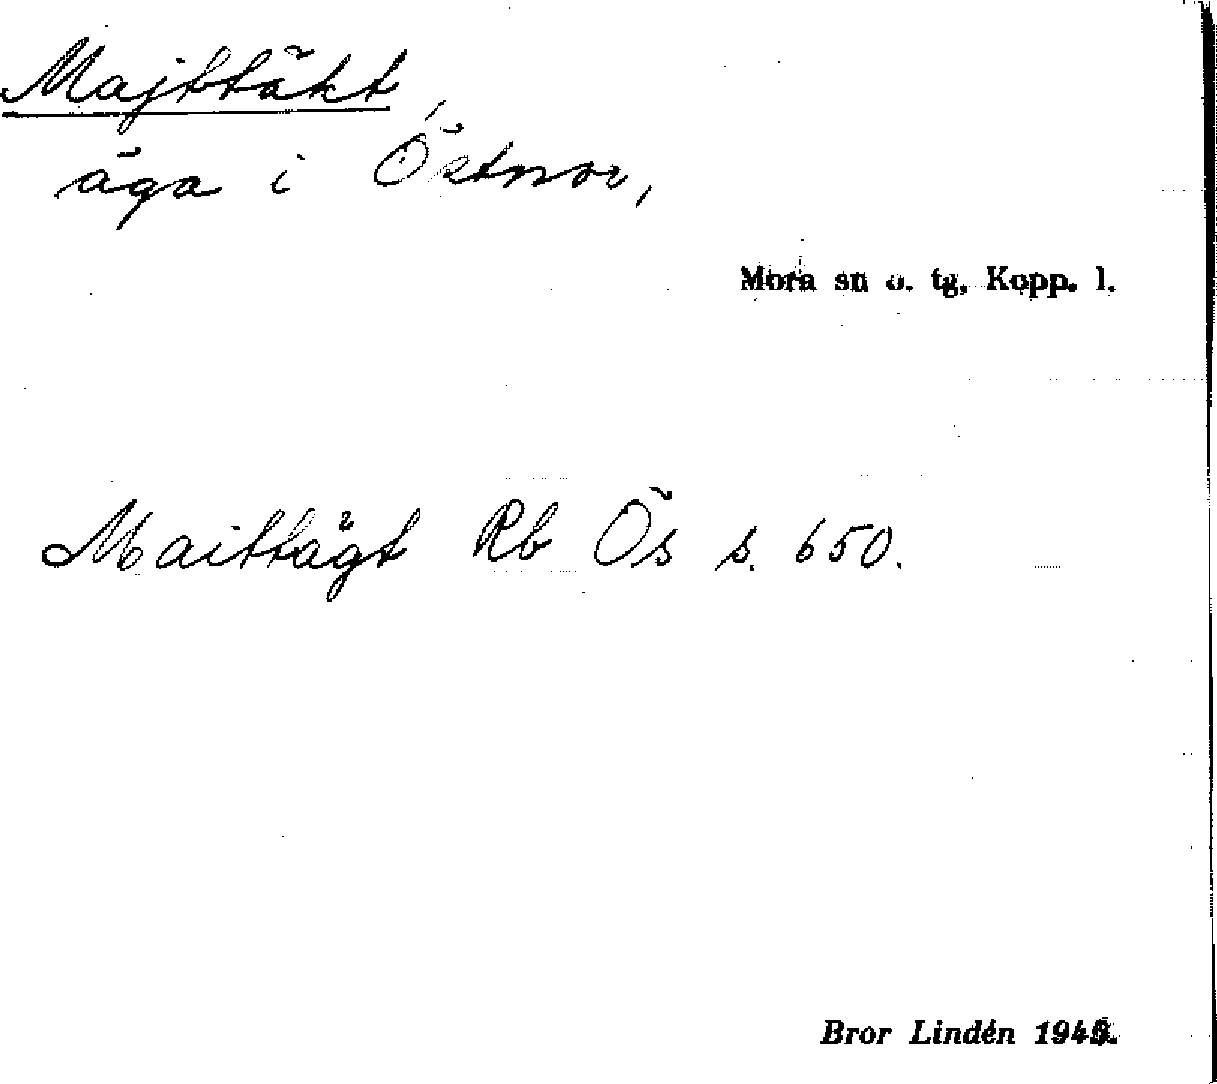 Majttäkt,
äga i Östnor,
Mora sn o. tg, Kopp. l.
Maittägt Rb Ös s. 650.
Bror Lindén